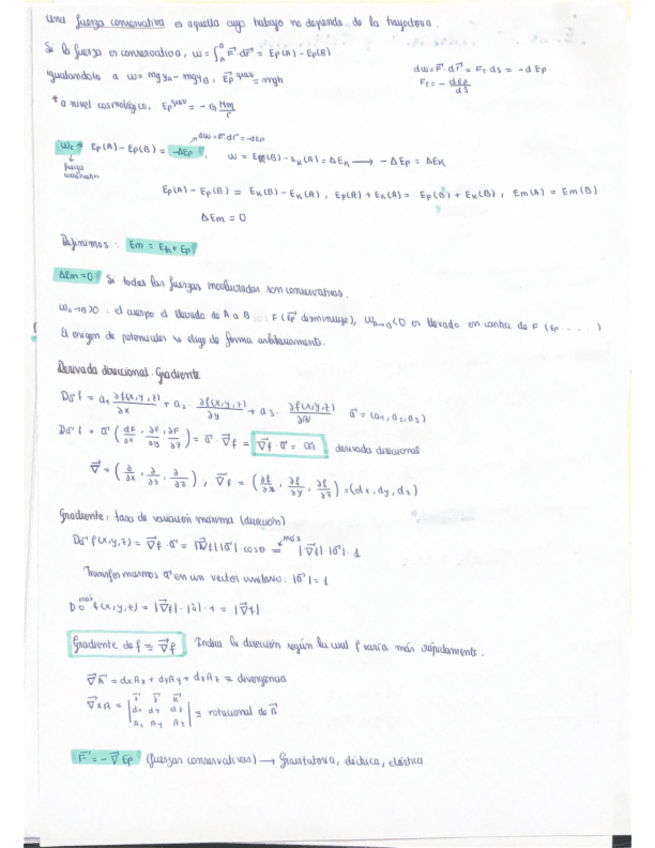 Una fuerza conservativa es aquella cuyo trabajo no depende de la trayectoria.
Si la fuerza es conservativa, w = ∫_A^B F⃗·dr⃗ = Ep(A) - Ep(B)
igualandolo a w = mgyA - mgyB, Ep^grav = mgh
dw = F⃗·dr⃗ = Ft ds = -dEp
Ft = - dEp/ds
* a nivel cosmológico, Ep^grav = -G Mm/r
dw = F⃗·dr⃗ = -dEp
Wc = Ep(A) - Ep(B) = -ΔEp, w = Ek(B) - Ek(A) = ΔEk → -ΔEp = ΔEk
fuerza conservativa
Ep(A) - Ep(B) = Ek(B) - Ek(A), Ep(A) + Ek(A) = Ep(B) + Ek(B), Em(A) = Em(B)
ΔEm = 0
Definimos: Em = Ek + Ep
ΔEm = 0 Si todas las fuerzas involucradas son conservativas.
WA→B > 0: el cuerpo es llevado de A a B F (Ep disminuye), WA→B < 0 es llevado en contra de F (Ep ...)
El origen de potenciales se elige de forma arbitrariamente.
Derivada direccional. Gradiente
f = a1 ∂f(x,y,z)/∂x + a2 · ∂f(x,y,z)/∂y + a3 · ∂f(x,y,z)/∂z = (a1, a2, a3)
derivada direccional
∇⃗ = (∂/∂x, ∂/∂y, ∂/∂z); ∇⃗f = (∂f/∂x, ∂f/∂y, ∂f/∂z) = (dx, dy, dz)
Gradiente: tasa de variación máxima (dirección)
Transformamos en un vector unitario: = 1
Gradiente de f = ∇⃗f Indica la dirección según la cual f varía más rápidamente.
∇⃗A⃗ = dxAx + dyAy + dzAz = divergencia
= rotacional de A⃗
F⃗ = -∇⃗Ep (fuerzas conservativas) → Gravitatoria, eléctrica, elástica